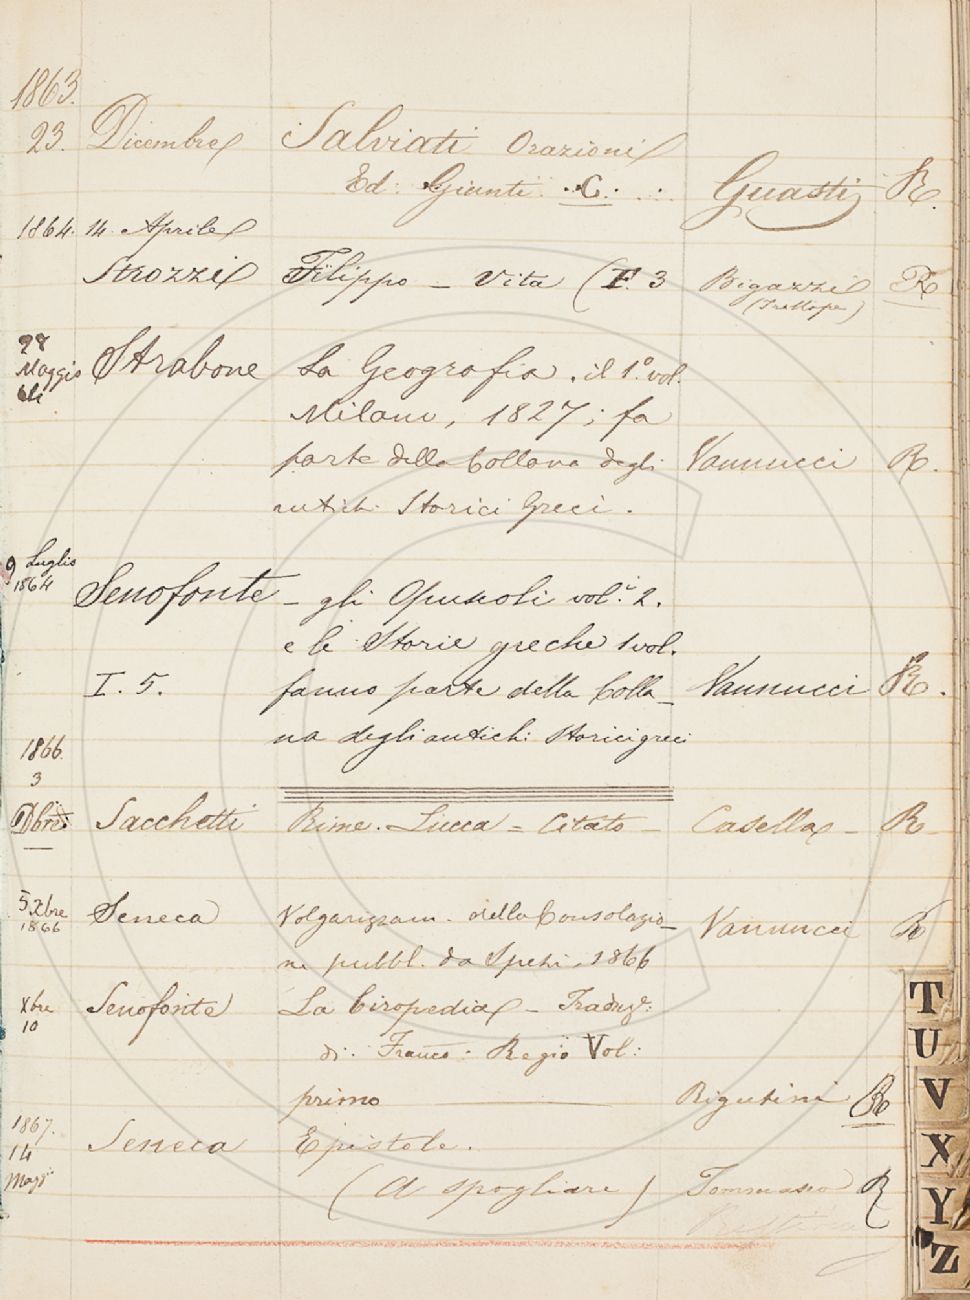 1863.
23. Dicembre Salviati Orazioni
Ed: Giunti .C. Guasti R.
1864. 14. Aprile
Strozzi Filippo – Vita (F. 3 Bigazzi R
(Trollope)
28
Maggio Strabone La Geografia. il 1.° vol.
64
Milano, 1827; fa
parte della Collana degli Vannucci R.
antichi Storici Greci.
9 Luglio
1864
Senofonte – gli Opuscoli vol.i 2.
e le Storie greche 1 vol.
I. 5. fanno parte della Colla– Vannucci R.
na degli antichi Storici greci
1866.
3
Dbre Sacchetti Rime. Lucca = Citato – Casella – R
5 Xbre
1866
Seneca Volgarizzam. della Consolazio– Vannucci R
ne pubbl. da Spezi, 1866
Xbre
10
Senofonte La Ciropedia – Traduz:
di: Franco: Regio Vol:
primo Rigutini R
1867.
14
Magg.
Seneca Epistole.
(A spogliare) Tommaso R
T
U
V
X
Y
Z